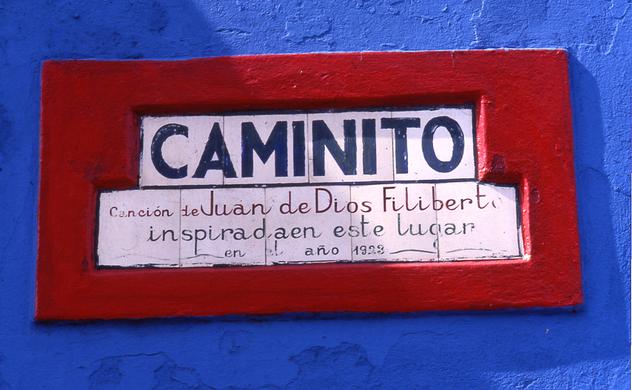 CAMINITO
Canción de Juan de Dios Filiberto
inspirada en este lugar
en el año